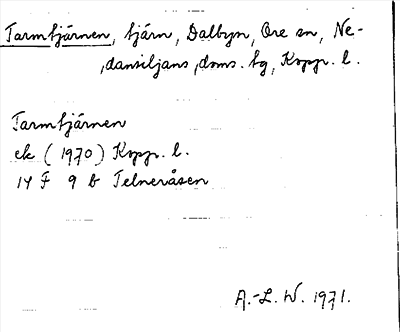 Tarmtjärnen, tjärn, Dalbyn, Ore sn, Ne-
dansiljans doms. tg, Kopp. l.
Tarmtjärnen
ek (1970) Kopp. l.
14 F 9 b Telneråsen
A.-L. W. 1971.